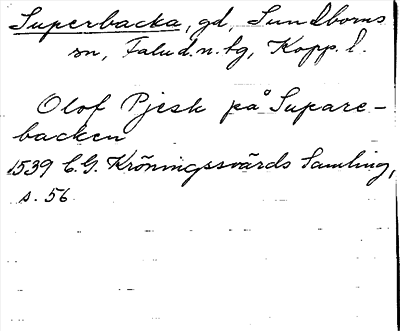 Superbacka, gd, Sundborns
sn, Falu d.n. tg, Kopp. l.
Olof Pjesk på Supare-
backen
1539 C.G. Kröningssvärds Samling,
s. 56